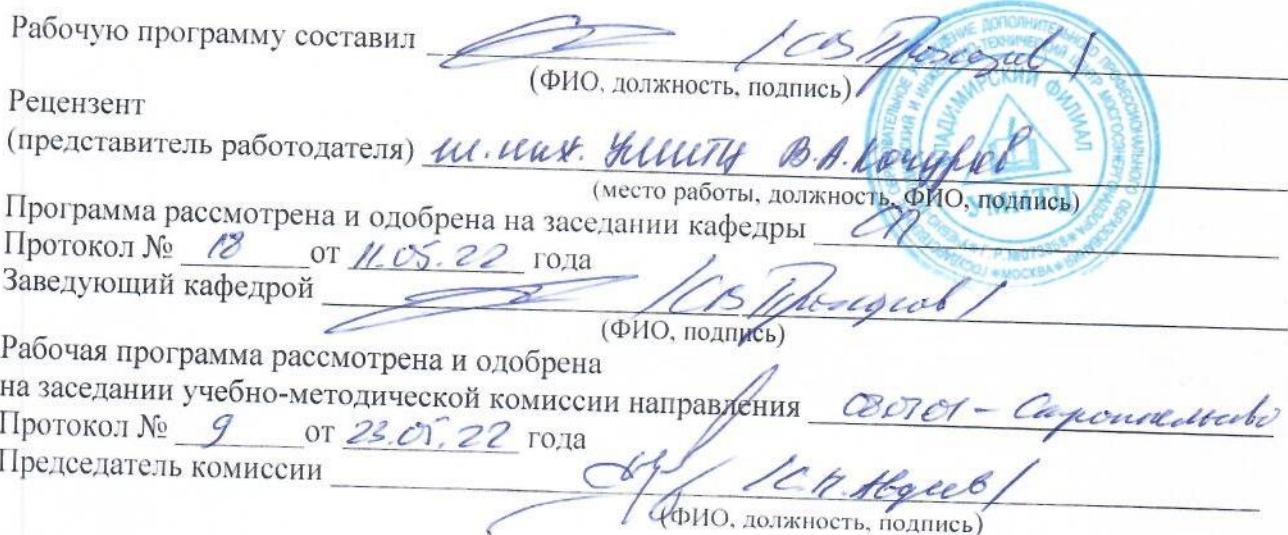 Рабочую программу составил /СВ Прохоров/
(ФИО, должность, подпись)
Рецензент
(представитель работодателя) УМИТЦ В.А.
(место работы, должность, ФИО, подпись)
Программа рассмотрена и одобрена на заседании кафедры СП
Протокол № 18 от 11.05.22 года
Заведующий кафедрой /СВ Прохоров/
(ФИО, подпись)
Рабочая программа рассмотрена и одобрена
на заседании учебно-методической комиссии направления 080101 – Строительство
Протокол № 9 от 23.05.22 года
Председатель комиссии /С.Н. Авдеев/
(ФИО, должность, подпись)
ВЛАДИМИРСКИЙ ФИЛИАЛ
УМИТЦ
МОСКВА